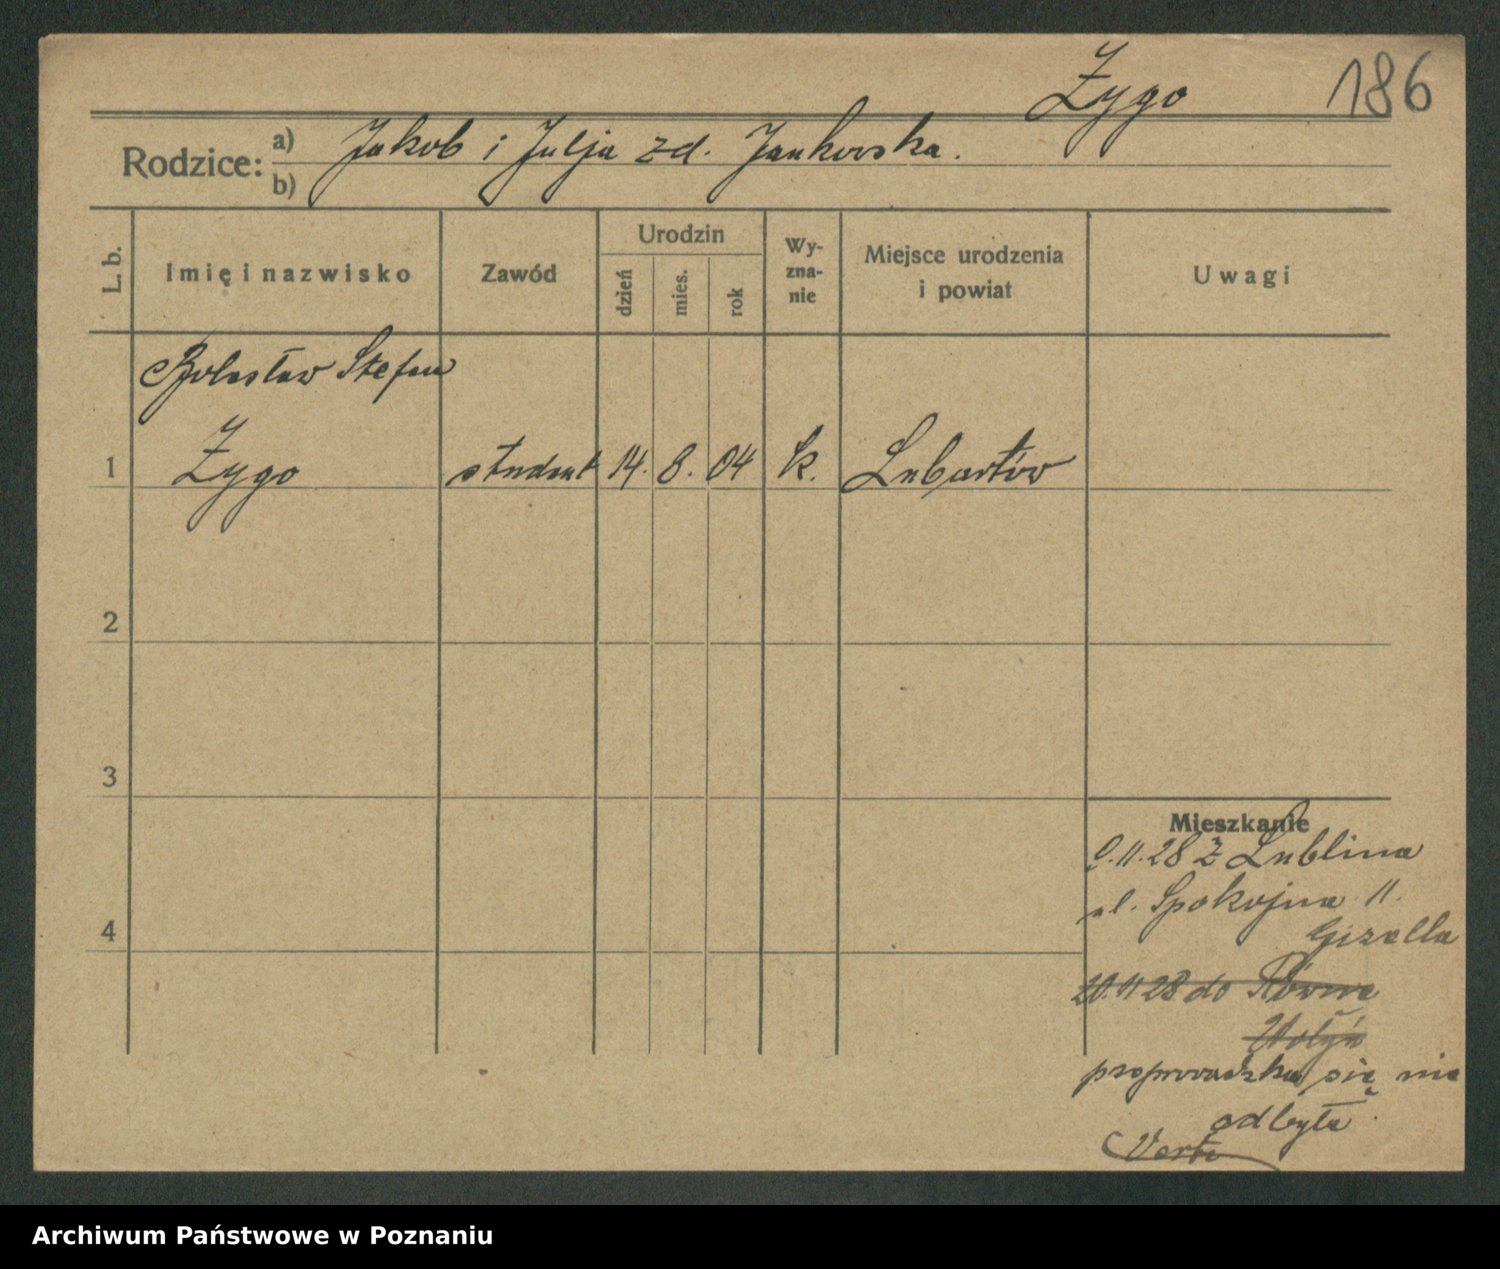 Zygo 186
Rodzice: a) Jakob i Julja zd. Jankowska.
b)
L. b.
Imię i nazwisko
Zawód
Urodzin
dzień
mies.
rok
Wy-
zna-
nie
Miejsce urodzenia
i powiat
Uwagi
Bolesław Stefan
1 Zygo student 14. 8. 04 k. Lubartów
2
3
Mieszkanie
9.11.28 z Lublina
ul. Spokojna 11.
4
Gizella
20.11 28 do Równe
Wołyń
przeprowadzka się nie
odbyła.
Verte
Archiwum Państwowe w Poznaniu